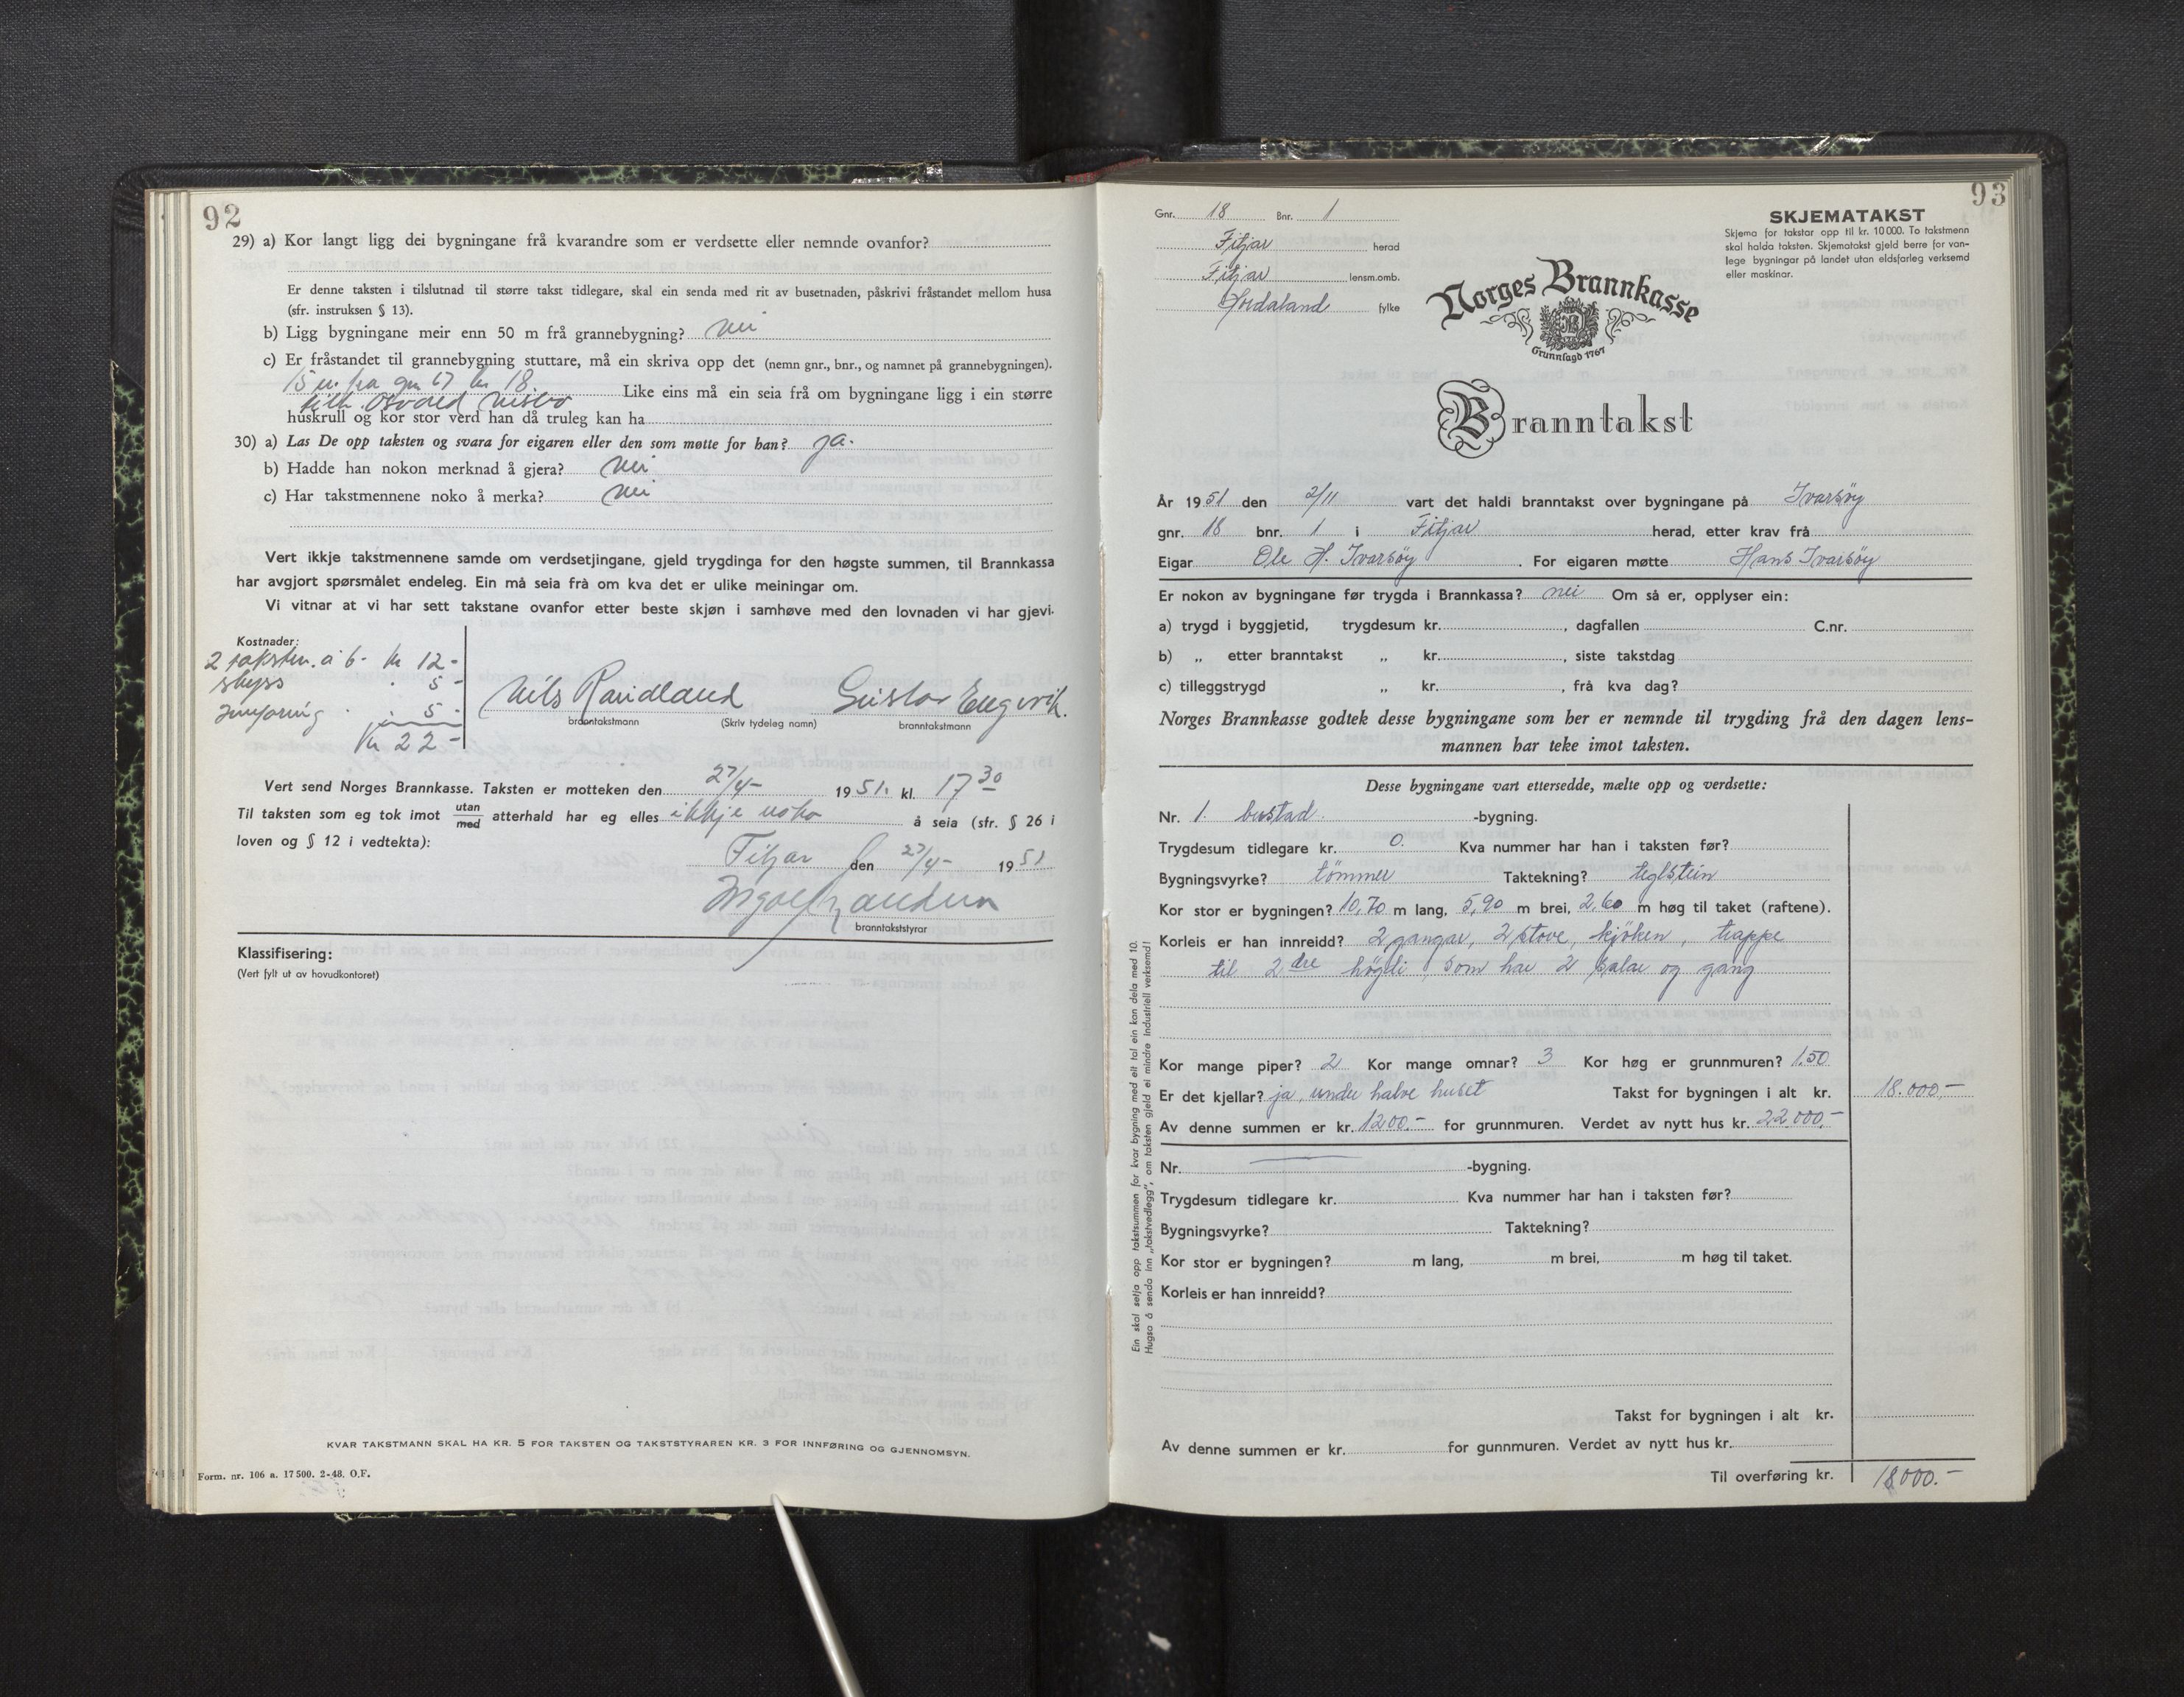 92
29) a) Kor langt ligg dei bygningane frå kvarandre som er verdsette eller nemnde ovanfor?
Er denne taksten i tilslutnad til større takst tidlegare, skal ein senda med rit av busetnaden, påskrivi fråstandet mellom husa
(sfr. instruksen § 13).
b) Ligg bygningane meir enn 50 m frå grannebygning? nei
c) Er fråstandet til grannebygning stuttare, må ein skriva opp det (nemn gnr., bnr., og namnet på grannebygningen).
15 m. fra gnr 67 bnr 18.
tilh. Osvald Like eins må ein seia frå om bygningane ligg i ein større
huskrull og kor stor verd han då truleg kan ha
30) a) Las De opp taksten og svara for eigaren eller den som møtte for han? ja.
b) Hadde han nokon merknad å gjera? nei
c) Har takstmennene noko å merka? nei
Vert ikkje takstmennene samde om verdsetjingane, gjeld trygdinga for den høgste summen, til Brannkassa
har avgjort spørsmålet endeleg. Ein må seia frå om kva det er ulike meiningar om.
Vi vitnar at vi har sett takstane ovanfor etter beste skjøn i samhøve med den lovnaden vi har gjevi.
Kostnader:
2 takstm. á 6- kr 12-
skyss . 5-
Innføring . 5-
Kr 22-
Nils Raudland Gustav Engevik.
branntakstmann (Skriv tydeleg namn) branntakstmann
Vert send Norges Brannkasse. Taksten er motteken den 27/4- 1951. kl. 17 30
Til taksten som eg tok imot utan/med atterhald har eg elles ikkje noko å seia (sfr. § 26 i
loven og § 12 i vedtekta):
Fitjar den 27/4- 1951
branntakststyrar
Klassifisering:
(Vert fylt ut av hovudkontoret)
KVAR TAKSTMANN SKAL HA KR. 5 FOR TAKSTEN OG TAKSTSTYRAREN KR. 3 FOR INNFØRING OG GJENNOMSYN.
Form. nr. 106 a. 17 500. 2-48. O.F.
93
Gnr. 18 Bnr. 1
Fitjar herad
Fitjar lensm.omb.
Hordaland fylke
SKJEMATAKST
Skjema for takstar opp til kr. 10 000. To takstmenn
skal halda taksten. Skjematakst gjeld berre for van-
lege bygningar på landet utan eldsfarleg verksemd
eller maskinar.
Norges Brannkasse
Grunnlagd 1767
Branntakst
År 1951 den 2/11 vart det haldi branntakst over bygningane på Ivarsöy
gnr. 18 bnr. 1 i Fitjar herad, etter krav frå
Eigar Ole H. Ivarsöy. For eigaren møtte Hans Ivarsöy
Er nokon av bygningane før trygda i Brannkassa? nei Om så er, opplyser ein:
a) trygd i byggjetid, trygdesum kr. , dagfallen C.nr.
b) „ etter branntakst „ kr. , siste takstdag
c) tilleggstrygd „ kr. , frå kva dag?
Norges Brannkasse godtek desse bygningane som her er nemnde til trygding frå den dagen lens-
mannen har teke imot taksten.
Desse bygningane vart ettersedde, mælte opp og verdsette:
Nr. 1. bustad. -bygning.
Trygdesum tidlegare kr. 0. Kva nummer har han i taksten før?
Bygningsvyrke? tömmer Taktekning? teglstein
Kor stor er bygningen? 10,70 m lang, 5,90 m brei, 2,60 m høg til taket (raftene).
Korleis er han innreidd? 2 gangar, 2 stove, kjöken, trappe
til 2dre högdi, som har 2 salar og gang
Kor mange piper? 2 Kor mange omnar? 3 Kor høg er grunnmuren? 1.50
Er det kjellar? ja, under halve huset Takst for bygningen i alt kr. 18.000,-
Av denne summen er kr. 1200.- for grunnmuren. Verdet av nytt hus kr. 22.000,-
Nr. -bygning.
Trygdesum tidlegare kr. Kva nummer har han i taksten før?
Bygningsvyrke? Taktekning?
Kor stor er bygningen? m lang, m brei, m høg til taket.
Korleis er han innreidd?
Takst for bygningen i alt kr.
Av denne summen er kr. for gunnmuren. Verdet av nytt hus kr.
Til overføring kr. 18000.-
Ein skal setja opp takstsummen for kvar bygning med eit tal ein kan dela med 10.
Hugsa å senda inn „takstvedlegg", om taksten gjeld ei mindre industriell verksemd!